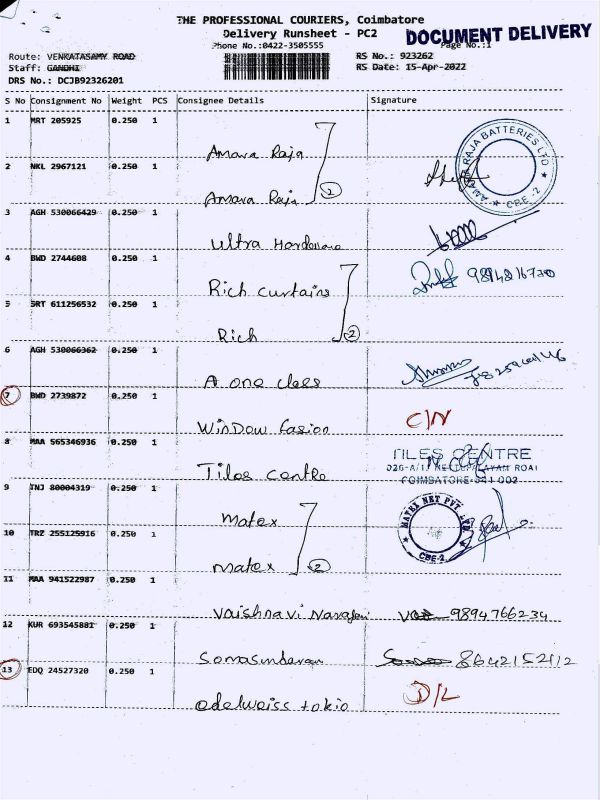 THE PROFESSIONAL COURIERS, Coimbatore
Delivery Runsheet - PC2
DOCUMENT DELIVERY
Phone No.:0422-3505555
Page No.:1
Route: VENKATASAMY ROAD
RS No.: 923262
Staff: GANDHI
RS Date: 15-Apr-2022
DRS No.: DCJB92326201
S No Consignment No Weight PCS Consignee Details Signature
1 MRT 205925 0.250 1
Amara Raja
2 NKL 2967121 0.250 1
Amara Raja 2
AMARA RAJA BATTERIES LTD
★ CBE-2 ★
3 AGH 530066429 0.250 1
Ultra
4 BWD 2744608 0.250 1
Rich curtains
5 SRT 611256532 0.250 1
Rich 2
6 AGH 530066362 0.250 1
A one class
7 BWD 2739872 0.250 1
Window fasion C/N
8 MAA 565346936 0.250 1
Tiles centre
TILES CENTRE
METTUPALAYAM ROAD
COIMBATORE-641 002
9 TNJ 80004319 0.250 1
Matex
MATEX NET PVT LTD
CBE-2
10 TRZ 255125916 0.250 1
matex 2
11 MAA 941522987 0.250 1
Vaishnavi 9894766234
12 KUR 693545881 0.250 1
Somasundaran
13 EDQ 24527320 0.250 1
edelweiss tokio D/L